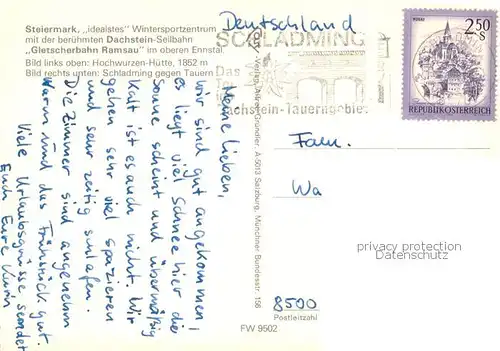 Steiermark, „idealstes" Wintersportzentrum
mit der berühmten Dachstein-Seilbahn
„Gletscherbahn Ramsau" im oberen Ennstal
Bild links oben: Hochwurzen-Hütte, 1852 m
Bild rechts unten: Schladming gegen Tauern
Deutschland
SCHLADMING
Das
Dachstein-Tauerngebiet
2.50
S
REPUBLIK ÖSTERREICH
Meine Lieben,
wir sind gut angekommen,
es liegt viel Schnee hier die
Sonne scheint und übermäßig
Kalt ist es auch nicht. Wir
gehen sehr viel spazieren
und sehr zeitig schlafen.
Die Zimmer sind angenehm
warm und das Frühstück gut.
Viele Urlaubsgrüsse, sendet
Euch Eure Karin
Verlag Gründler, A-5013 Salzburg, Münchner Bundesstr. 156
Fam.
Wa
privacy protection
Datenschutz
8500
Postleitzahl
FW 9502